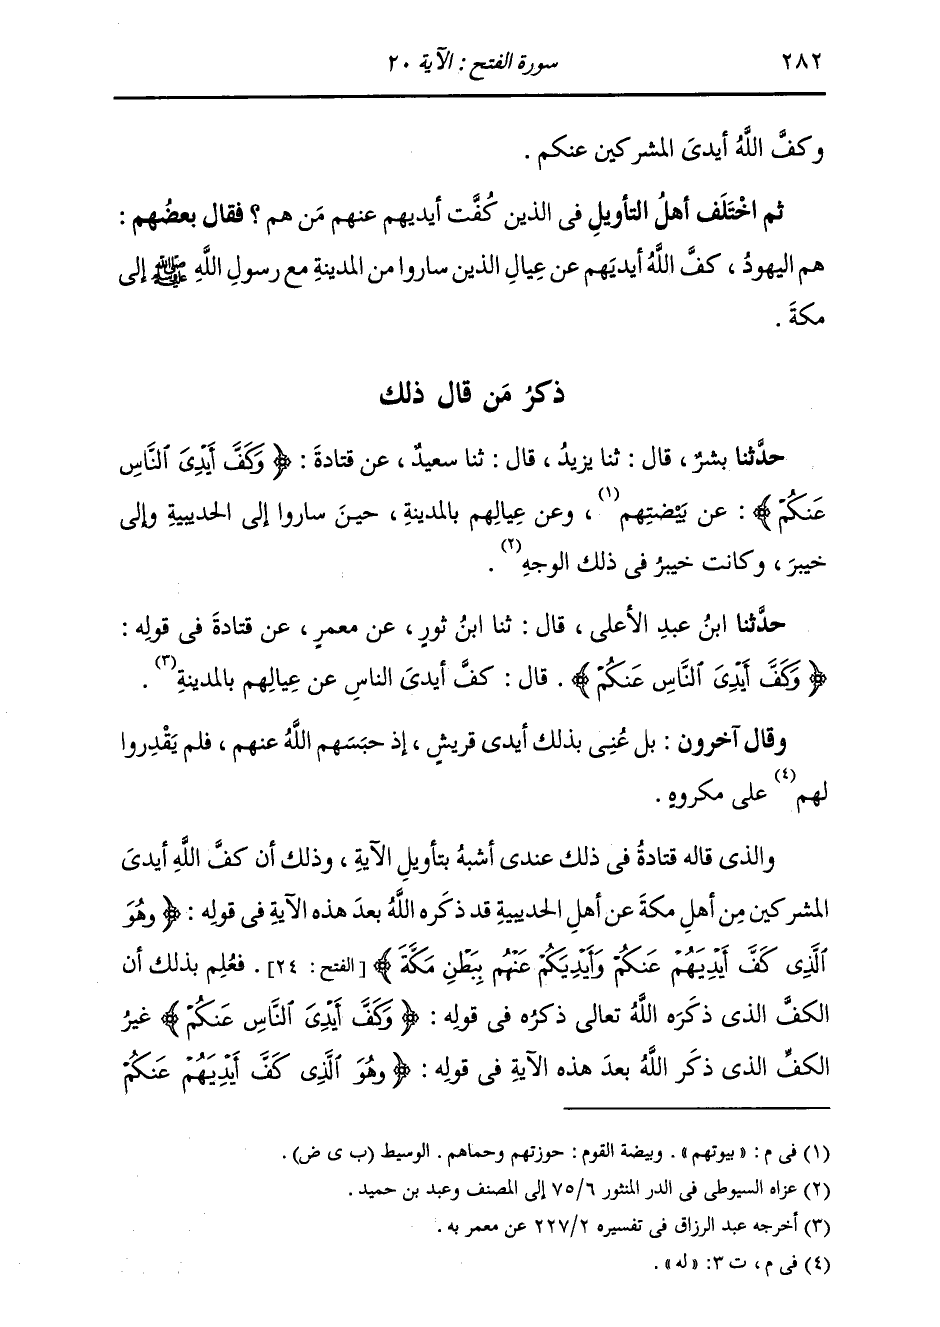 ٢٨٢
سورة الفتح : الآية ٢٠
وكفَّ اللَّهُ أيدىَ المشركين عنكم .
ثم اخْتَلَف أهلُ التأويلِ فى الذين كُفَّت أيديهم عنهم مَن هم ؟ فقال بعضُهم :
هم اليهودُ ، كفَّ اللَّهُ أيديَهم عن عِيالِ الذين ساروا من المدينةِ مع رسولِ اللَّهِ ﷺ إلى
مكةَ .
ذكرُ مَن قال ذلك
حدَّثنا بشرٌ ، قال : ثنا يزيدُ ، قال : ثنا سعيدٌ ، عن قتادةَ : ﴿ وَكَفَّ أَيْدِىَ ٱلنَّاسِ
عَنكُمْ ﴾ : عن بَيْضتِهم(١) ، وعن عِيالِهم بالمدينةِ ، حينَ ساروا إلى الحديبيةِ وإلى
خيبرَ ، وكانت خيبرُ فى ذلك الوجهِ(٢) .
حدَّثنا ابنُ عبدِ الأعلى ، قال : ثنا ابنُ ثورٍ ، عن معمرٍ ، عن قتادةَ فى قولِه :
﴿ وَكَفَّ أَيْدِىَ ٱلنَّاسِ عَنكُمْ ﴾ . قال : كفَّ أيدىَ الناسِ عن عِيالِهم بالمدينةِ(٣) .
وقال آخرون : بل عُنِى بذلك أيدى قريشٍ ، إذ حبَسَهم اللَّهُ عنهم ، فلم يَقْدِروا
لهم(٤) على مكروهٍ .
والذى قاله قتادةُ فى ذلك عندى أشبهُ بتأويلِ الآيةِ ، وذلك أن كفَّ اللَّهِ أيدىَ
المشركين مِن أهلِ مكةَ عن أهلِ الحديبيةِ قد ذكَره اللَّهُ بعدَ هذه الآيةِ فى قولِه : ﴿ وَهُوَ
ٱلَّذِى كَفَّ أَيْدِيَهُمْ عَنكُمْ وَأَيْدِيَكُمْ عَنْهُم بِبَطْنِ مَكَّةَ ﴾ [ الفتح : ٢٤] . فعُلِم بذلك أن
الكفَّ الذى ذكَره اللَّهُ تعالى ذكرُه فى قولِه : ﴿ وَكَفَّ أَيْدِىَ ٱلنَّاسِ عَنكُمْ ﴾ غيرُ
الكفِّ الذى ذكَر اللَّهُ بعدَ هذه الآيةِ فى قولِه : ﴿ وَهُوَ ٱلَّذِى كَفَّ أَيْدِيَهُمْ عَنكُمْ
(١) فى م : « بيوتهم » . وبيضة القوم : حوزتهم وحماهم . الوسيط (ب ى ض) .
(٢) عزاه السيوطى فى الدر المنثور ٦/ ٧٥ إلى المصنف وعبد بن حميد .
(٣) أخرجه عبد الرزاق فى تفسيره ٢/ ٢٢٧ عن معمر به .
(٤) فى م ، ت ٣: « له » .